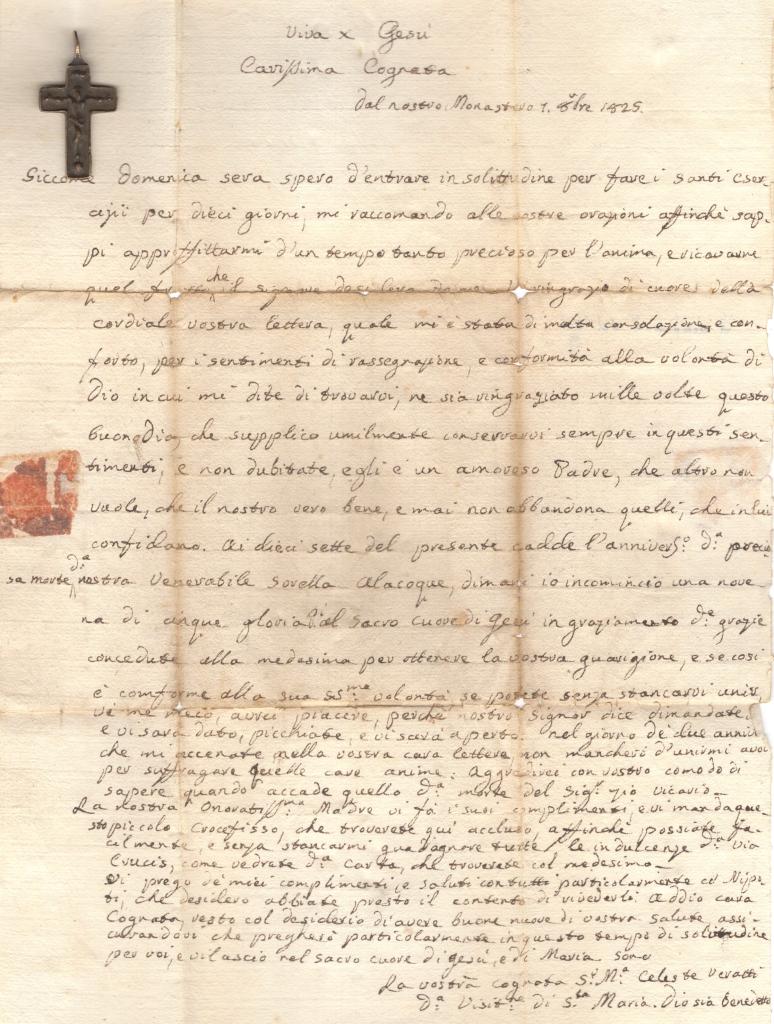 Viva x Gesù
Carissima Cognata
dal nostro Monastero 7. 8bre 1825.
Siccome domenica sera spero d'entrare in solittudine per fare i santi Eser-
cizii per dieci giorni, mi raccomando alle vostre orazioni affinchè sap-
pi approffittarmi d'un tempo tanto precioso per l'anima, e ricavarne
quel frutto che il signore desidera da me. Vi ringrazio di cuore della
cordiale vostra lettera, quale mi è stata di molta consolazione, e con-
forto, per i sentimenti di rassegnazione, e conformità alla volontà di
Dio in cui mi dite di trovarvi, ne sia ringraziato mille volte questo
buono Dio, che supplico umilmente conservarvi sempre in questi sen-
timenti, e non dubitate, egli è un amoroso Padre, che altro non
vuole, che il nostro vero bene, e mai non abbandona quelli, che in lui
confidano. Ai dieci sette del presente cadde l'annivers.o d.a precio
sa morte d.a nostra Venerabile Sorella Alacoque, dimani io incomincio una nove-
na di cinque gloria al Sacro Cuore di Gesù in graziamento d.e grazie
concedute alla medesima per ottenere la vostra guarigione, e se così
è comforme alla sua SS.ma volontà, se potete senza stancarvi unir-
ve ne meco, avrei piacere, perchè nostro Signor dice dimandate,
e vi sarà dato, picchiate, e vi sarà aperto. nel giorno de' due anniv.
che mi accenate nella vostra cara lettera, non mancherò d'unirmi a voi
per suffragare quelle care anime. Aggradirei con vostro comodo di
sapere quando accade quello d.a morte del Sig.r zio vicario.
La nostra Onoratiss.ma Madre vi fa i suoi complimenti, e vi manda que-
sto piccolo Crocefisso, che troverete qui accluso, affinchè possiate fa-
cilmente, e senza stancarmi guadagnare tutte le indulgenze d.a Via
Crucis, come vedrete d.a Carta, che troverete col medesimo.
Vi prego de' miei complimenti, e saluti con tutti particolarmente co' Nipo-
ti, che desidero abbiate presto il contento di riverderli. Addio cara
Cognata, resto col desiderio di avere buone nuove di vostra salute assi-
curandovi che pregherò particolarmente in questo tempo di solittudine
per voi, e vi lascio nel sacro cuore di gesù, e di Maria. sono
La vostra cognata S.r M.a Celeste Veratti
D.a Visit.ne di S.ta Maria. Dio sia benedetto